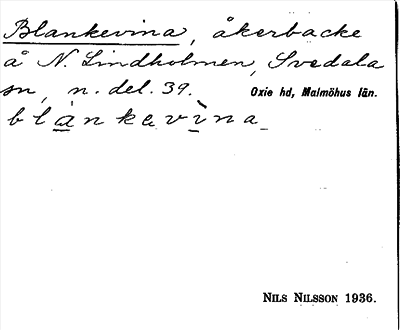 Blankevina, åkerbacke
å N. Lindholmen, Svedala
sn, n. del. 39. Oxie hd, Malmöhus län.
blànkevìna
NILS NILSSON 1936.